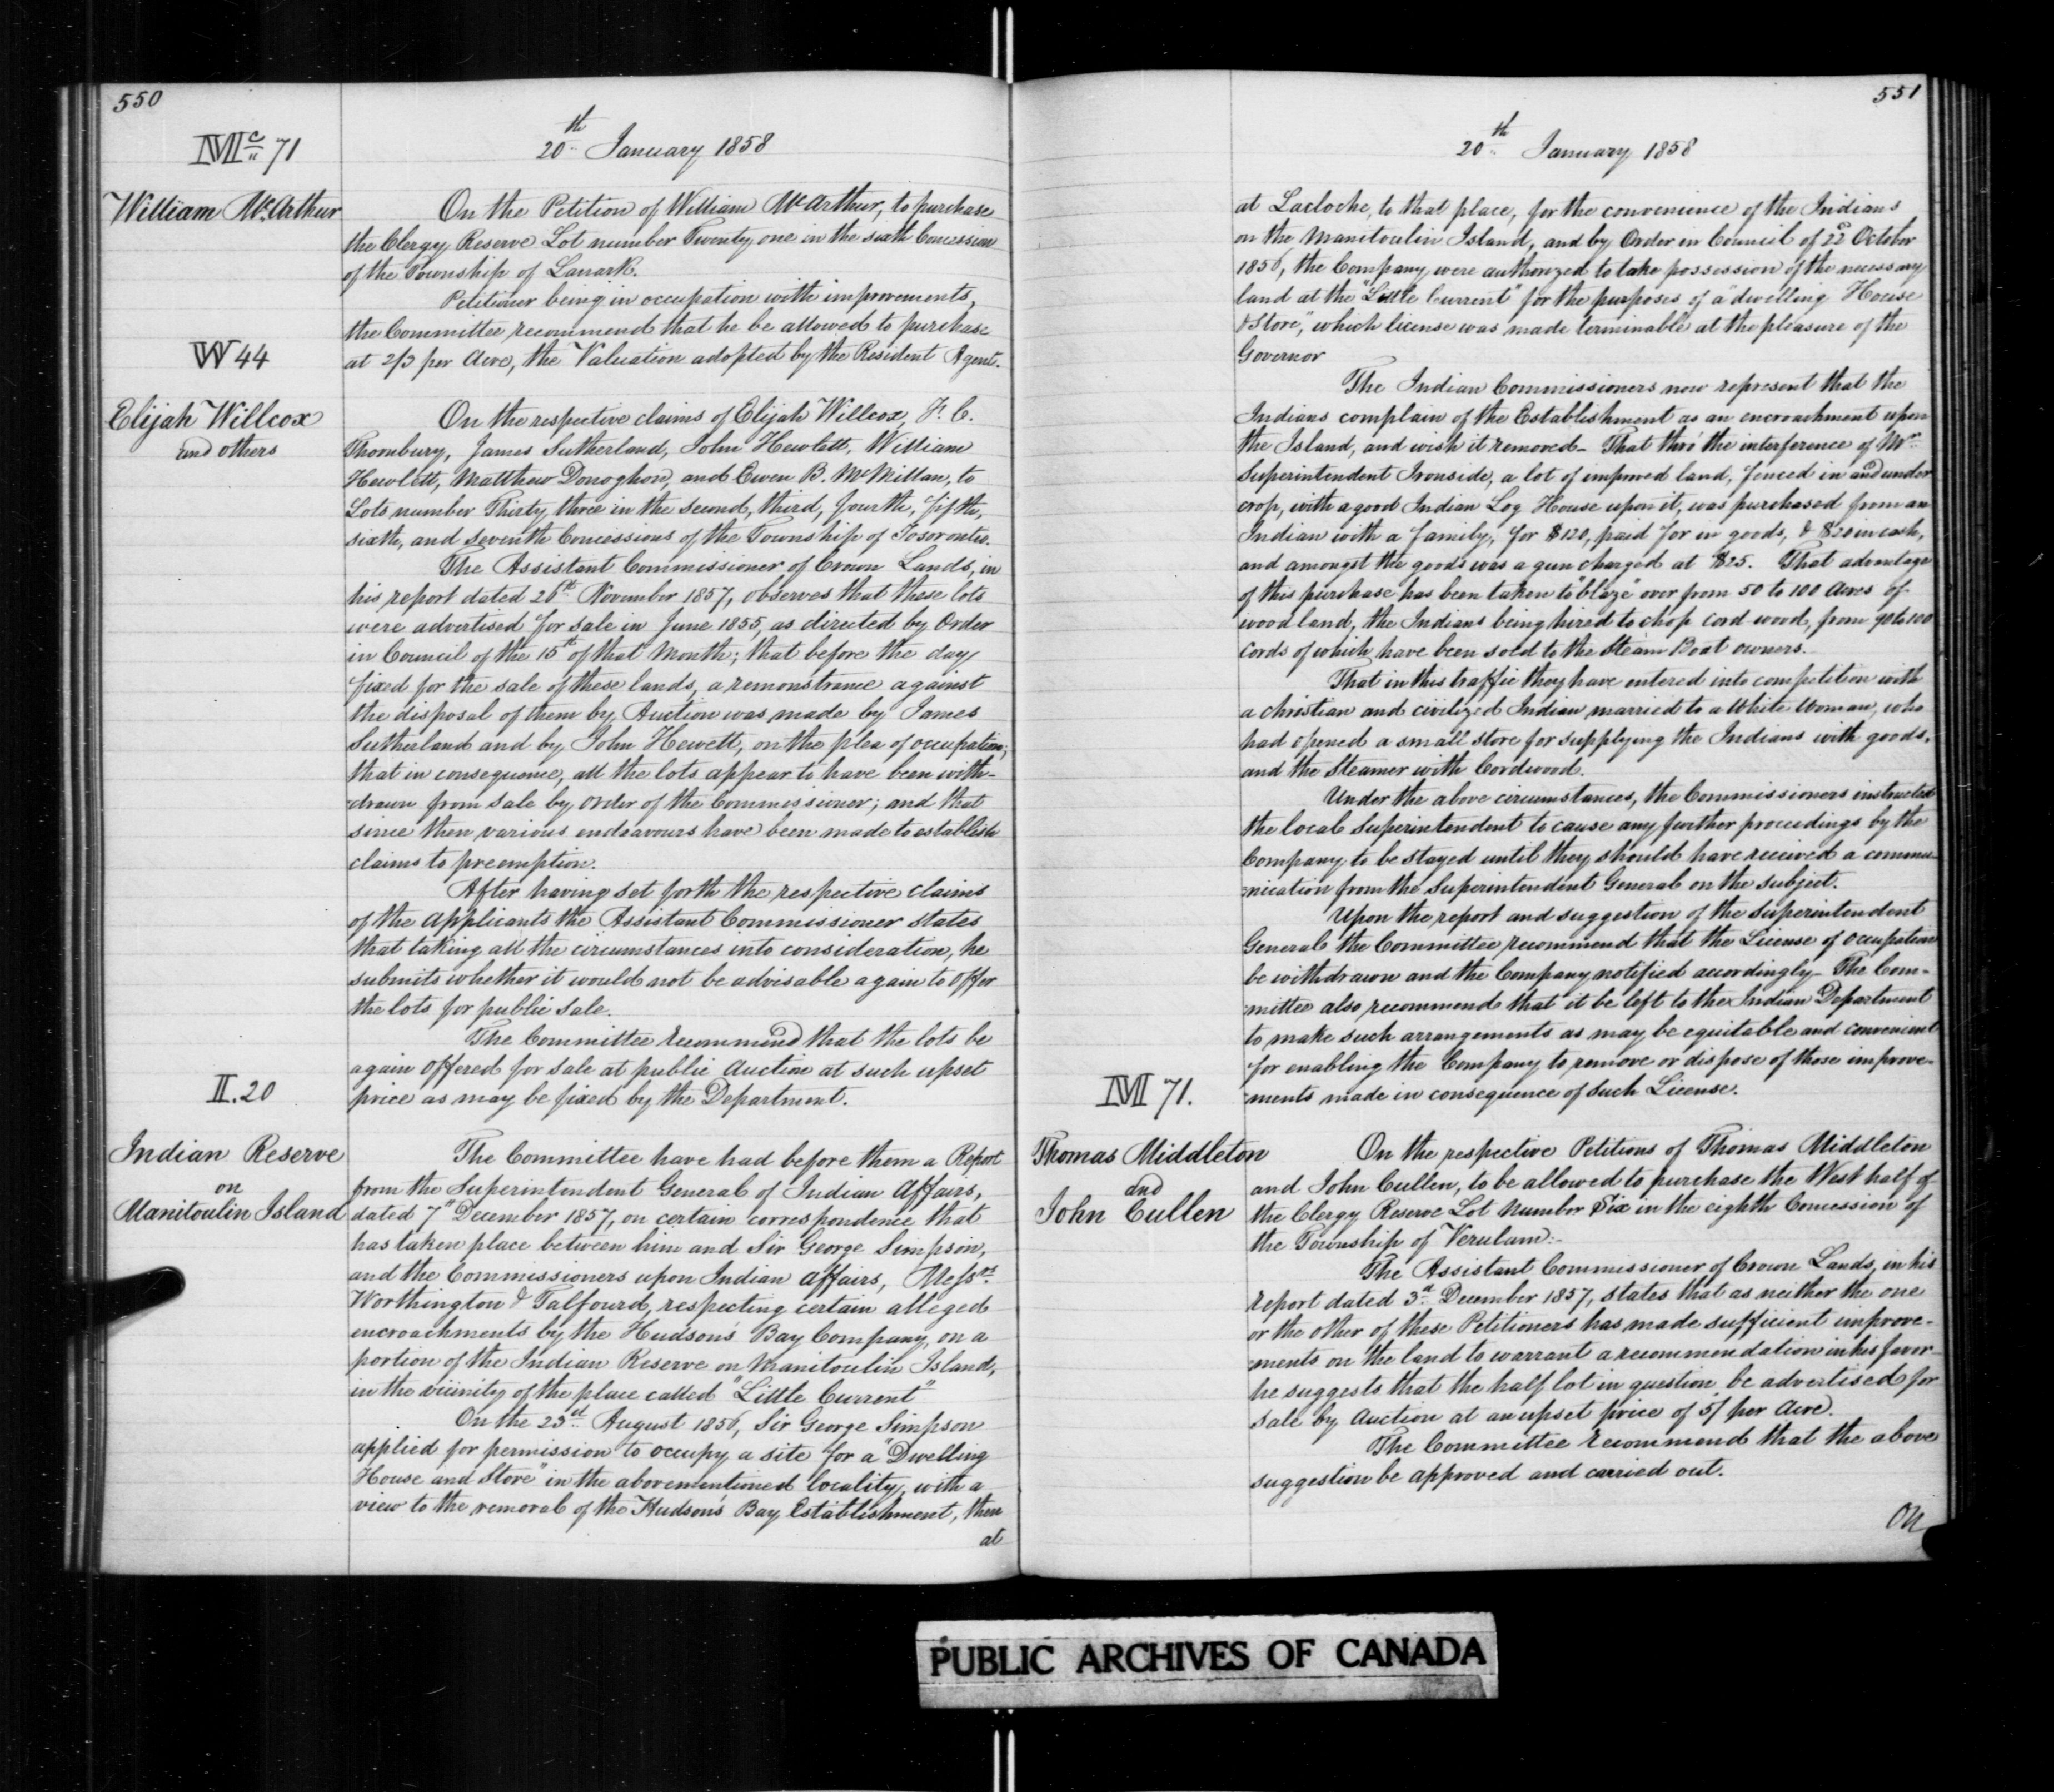 550
Mc 71
20th January 1858
William McArthur
On the Petition of William McArthur, to purchase
the Clergy Reserve Lot number Twenty one in the sixth Concession
of the Township of Lanark.
Petitioner being in occupation with improvements,
the Committee recommend that he be allowed to purchase
at 2/3 per Acre, the Valuation adopted by the Resident Agent.
W 44
Elijah Willcox
and others
On the respective claims of Elijah Willcox, F. C.
Thornbury, James Sutherland, John Hewlett, William
Hewlett, Matthew Donoghow, and Ewen B. McMillan, to
Lots number Thirty three in the second, third, fourth, fifth,
sixth, and seventh Concessions of the Township of Tosorontio.
The Assistant Commissioner of Crown Lands, in
his report dated 26th November 1857, observes that these lots
were advertised for sale in June 1855, as directed by Order
in Council of the 15th of that Month; that before the day
fixed for the sale of these lands, a remonstrance against
the disposal of them by Auction was made by James
Sutherland and by John Hewett, on the plea of occupation;
that in consequence, all the lots appear to have been with-
drawn from sale by order of the Commissioner; and that
since then various endeavours have been made to establish
claims to preemption.
After having set forth the respective claims
of the Applicants the Assistant Commissioner states
that taking all the circumstances into consideration, he
submits whether it would not be advisable again to offer
the lots for public sale.
The Committee recommend that the lots be
again offered for sale at public Auction at such upset
price as may be fixed by the Department.
I. 20
Indian Reserve
on
Manitoulin Island
The Committee have had before them a Report
from the Superintendent General of Indian Affairs,
dated 7" December 1857, on certain correspondence that
has taken place between him and Sir George Simpson,
and the Commissioners upon Indian Affairs, Messrs
Worthington & Talfourd, respecting certain alleged
encroachments by the Hudson's Bay Company, on a
portion of the Indian Reserve on Manitoulin Island,
in the vicinity of the place called "Little Current"
On the 23rd August 1856, Sir George Simpson
applied for permission to occupy a site for a "Dwelling
House and Store" in the abovementioned locality, with a
view to the removal of the Hudson's Bay Establishment, then
at
551
20th January 1858
at Lacloche, to that place, for the convenience of the Indians
on the Manitoulin Island, and by Order in Council of 22d October
1856, the Company were authorized to take possession of the necessary
land at the "Little Current" for the purposes of a "dwelling House
& Store", which license was made terminable at the pleasure of the
Governor
The Indian Commissioners now represent that the
Indians complain of the Establishment as an encroachment upon
the Island, and wish it removed - That thro' the interference of Mr
Superintendent Ironside, a lot of improved land, fenced in and under
crop, with a good Indian Log House upon it, was purchased from an
Indian with a family, for $120, paid for in goods, & $20 in cash,
and amongst the goods was a gun charged at $25. That advantage
of this purchase has been taken to "blaze" over from 50 to 100 Acres of
wood land, the Indians being hired to chop cord wood, from 90 to 100
cords of which have been sold to the Steam Boat owners.
That in this traffic they have entered into competition with
a christian and civilized Indian married to a White Woman, who
had opened a small store for supplying the Indians with goods,
and the Steamer with Cordwood.
Under the above circumstances, the Commissioners instructed
the local Superintendent to cause any further proceedings by the
Company to be stayed until they should have received a commu-
nication from the Superintendent General on the subject.
Upon the report and suggestion of the Superintendent
General the Committee recommend that the License of Occupation
be withdrawn and the Company notified accordingly - The Com-
mittee also recommend that it be left to the Indian Department
to make such arrangements as may be equitable and convenient
for enabling the Company to remove or dispose of those improve-
ments made in consequence of such License.
M 71.
Thomas Middleton
and
John Cullen
On the respective Petitions of Thomas Middleton
and John Cullen, to be allowed to purchase the West half of
the Clergy Reserve Lot number Six in the eighth Concession of
the Township of Verulam:-
The Assistant Commissioner of Crown Lands, in his
report dated 3d December 1857, states that as neither the one
or the other of these Petitioners has made sufficient improve-
ments on the land to warrant a recommendation in his favor
he suggests that the half lot in question be advertised for
sale by Auction at an upset price of 5/ per Acre.
The Committee recommend that the above
suggestion be approved and carried out.
On
PUBLIC ARCHIVES OF CANADA